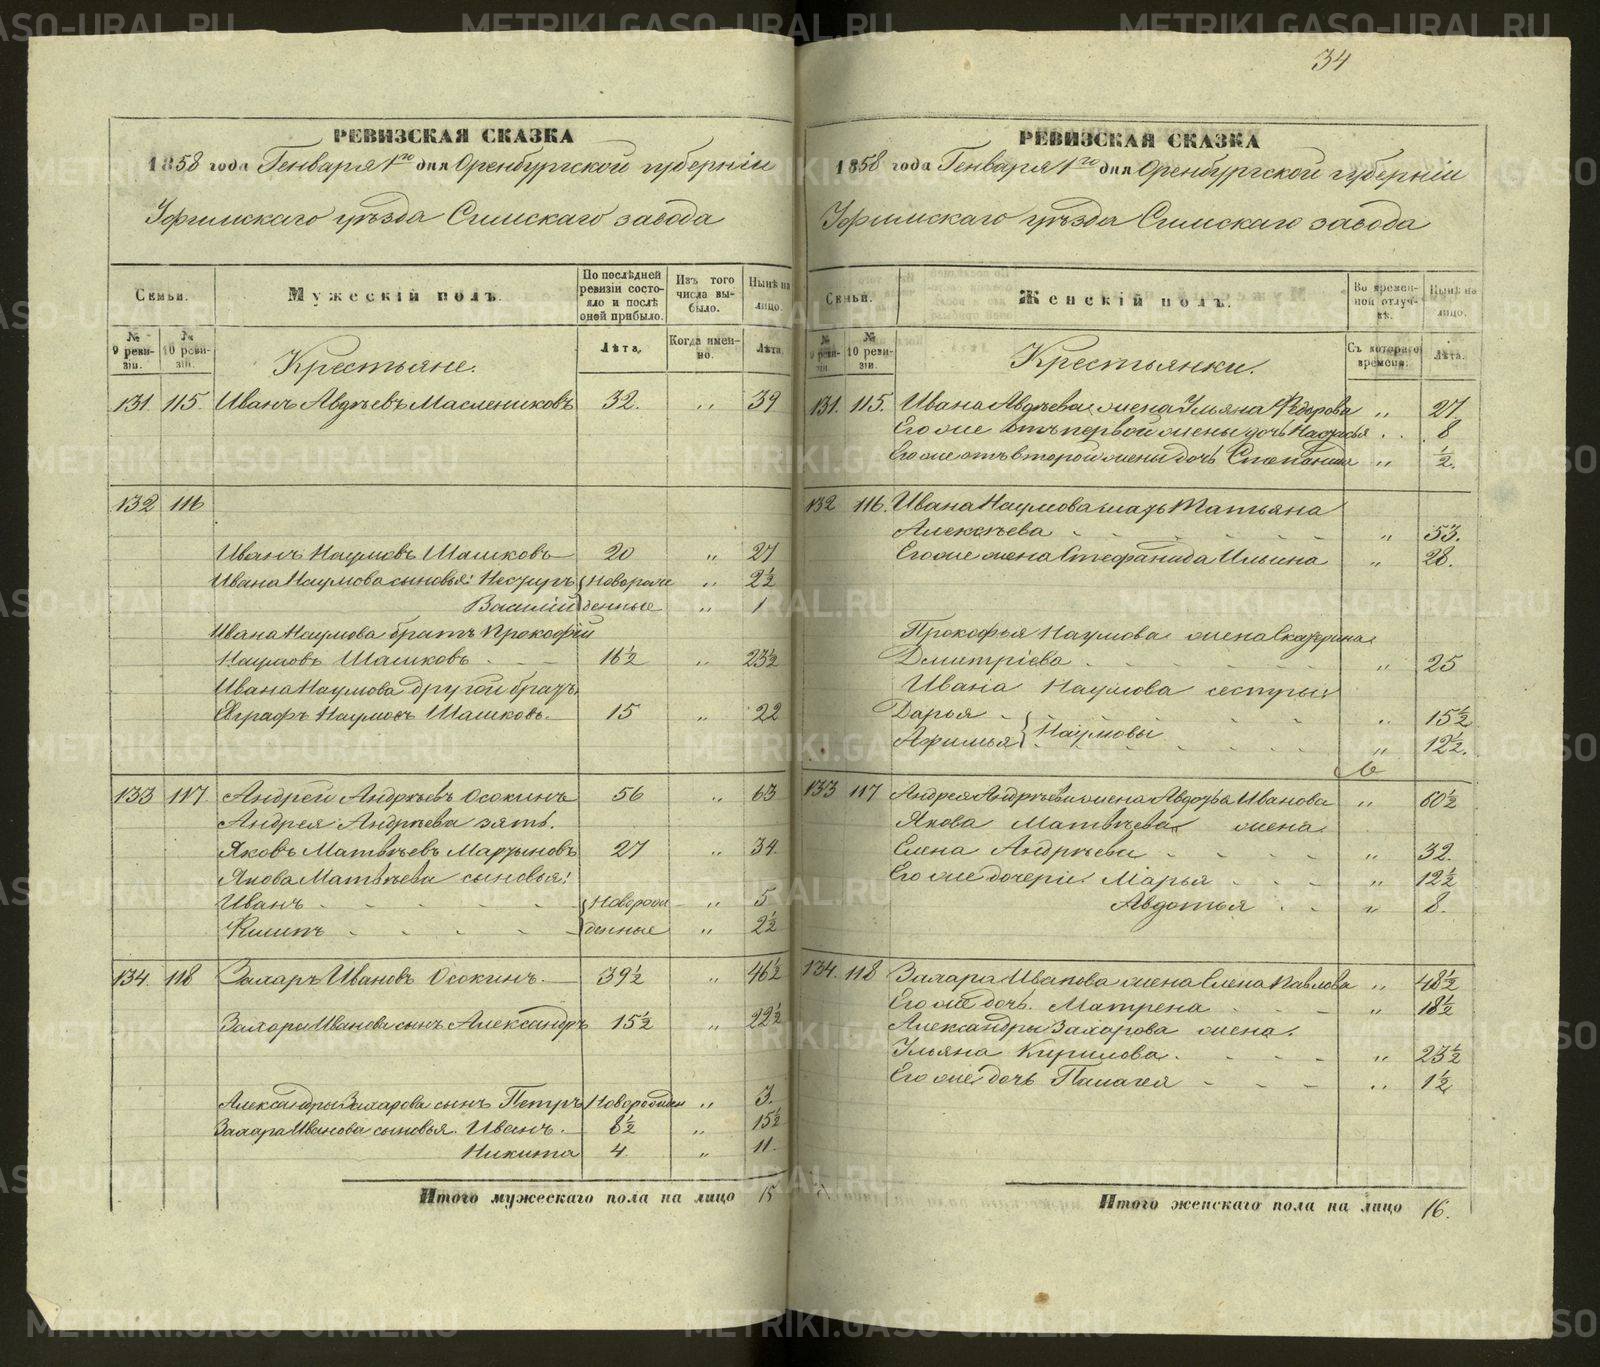 34
РЕВИЗСКАЯ СКАЗКА
1858 года Генваря 1го дня Оренбургской губерніи
Уфимскаго уѣзда Симскаго завода
Семьи.
Мужескій полъ.
По послѣдней ревизіи состояло и послѣ оней прибыло.
Изъ того числа выбыло.
Нынѣ на лицо.
№ 9 ревизіи.
№ 10 ревизіи.
Крестьяне.
Лѣта.
Когда именно.
Лѣта.
131. 115. Иванъ Авдѣевъ Маслениковъ 32. " 39
132 116
Иванъ Наумовъ Шашковъ 20 " 27
Ивана Наумова сыновья: Несторъ новорож " 2½
Василій денные " 1
Ивана Наумова братъ Прокофій
Наумовъ Шашковъ 16½ " 23½
Ивана Наумова другой братъ
Евграфъ Наумовъ Шашковъ. 15 " 22
133 117 Андрей Андрѣевъ Осокинъ 56 " 63
Андрея Андрѣева зять.
Яковъ Матвѣевъ Мартыновъ 27 " 34
Якова Матвѣева сыновья:
Иванъ новорож " 5
Филипъ денные " 2½
134. 118 Захаръ Ивановъ Осокинъ. 39½ " 46½
Захара Иванова сынъ Александръ 15½ " 22½
Александры Захарова сынъ Петръ новорожден " 3.
Захара Иванова сыновья. Иванъ. 8½ " 15½
Никита 4 " 11.
Итого мужескаго пола на лицо 15
РЕВИЗСКАЯ СКАЗКА
1858 года Генваря 1го дня Оренбургской губерніи
Уфимскаго уѣзда Симскаго завода
Семьи.
Женскій полъ.
Во временной отлучкѣ.
Нынѣ на лицо.
№ 9 ревизіи.
№ 10 ревизіи.
Крестьянки.
Съ котораго времени.
Лѣта.
131. 115. Ивана Авдѣева жена Ульяна Федорова " 27
Его же отъ первой жены дочь Настасья " 8
Его же отъ второй жены дочь Степанида " ½.
132 116. Ивана Наумова мать Татьяна
Алексѣева " 53.
Его же жена Стефанида Ильина " 28.
Прокофья Наумова жена Екатерина
Дмитріева " 25
Ивана Наумова сестры:
Дарья " 15½
Наумовы
Афимья " 12½.
133 117 Андрея Андрѣева жена Авдотья Иванова " 60½
Якова Матвѣева жена
Елена Андрѣева " 32.
Его же дочери: Марья " 12½
Авдотья " 8.
134. 118 Захара Иванова жена Елена Павлова " 48½
Его же дочь. Матрена " 18½
Александры Захарова жена.
Ульяна Кирилова " 23½
Его же дочь Палагея " 1½
Итого женскаго пола на лицо 16.
METRIKI.GASO-URAL.RU